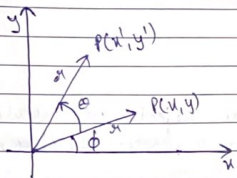 y
P(x', y')
r
θ
P(x, y)
r
ϕ
x